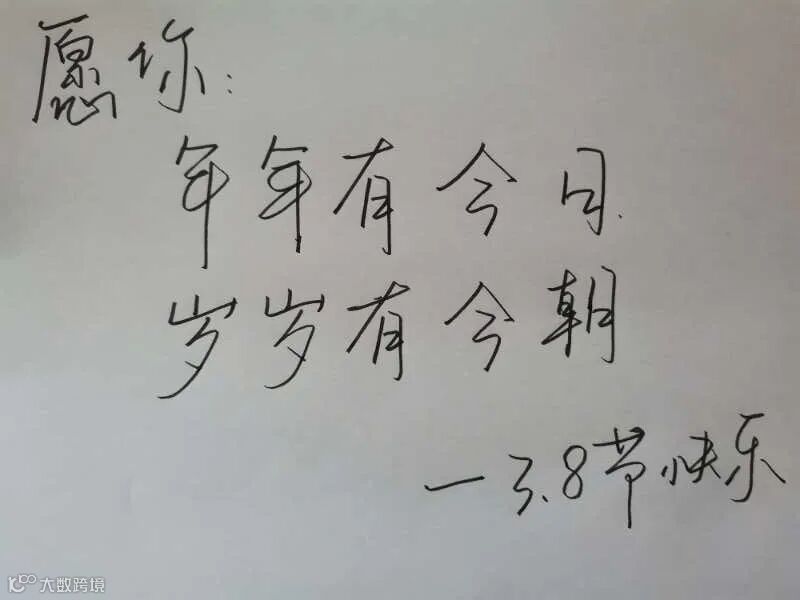 愿你:
年年有今日.
岁岁有今朝
一3.8节快乐
大数跨境